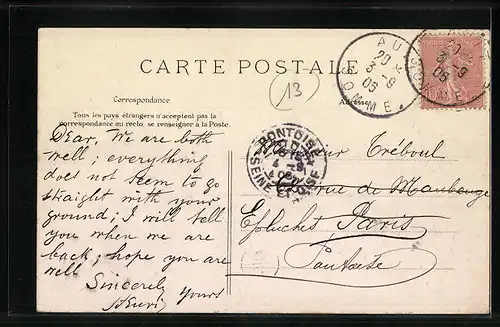 CARTE POSTALE
13
Correspondance
Tous les pays étrangers n'acceptent pas la
correspondance au recto, se renseigner à la Poste.
Adresse
AULT
20
3-9
06
SOMME
20
3-9
06
SOMME
PONTOISE
4-9
06
SEINE ET OISE
Dear, We are both
well; everything
does not seem to go
straight with your
ground; I will tell
you when we are
back; hope you are
well
Sincerely
yours
Henri
Monsieur Tréboul
rue de Maubeuge
Paris
Epluches
Pontoise